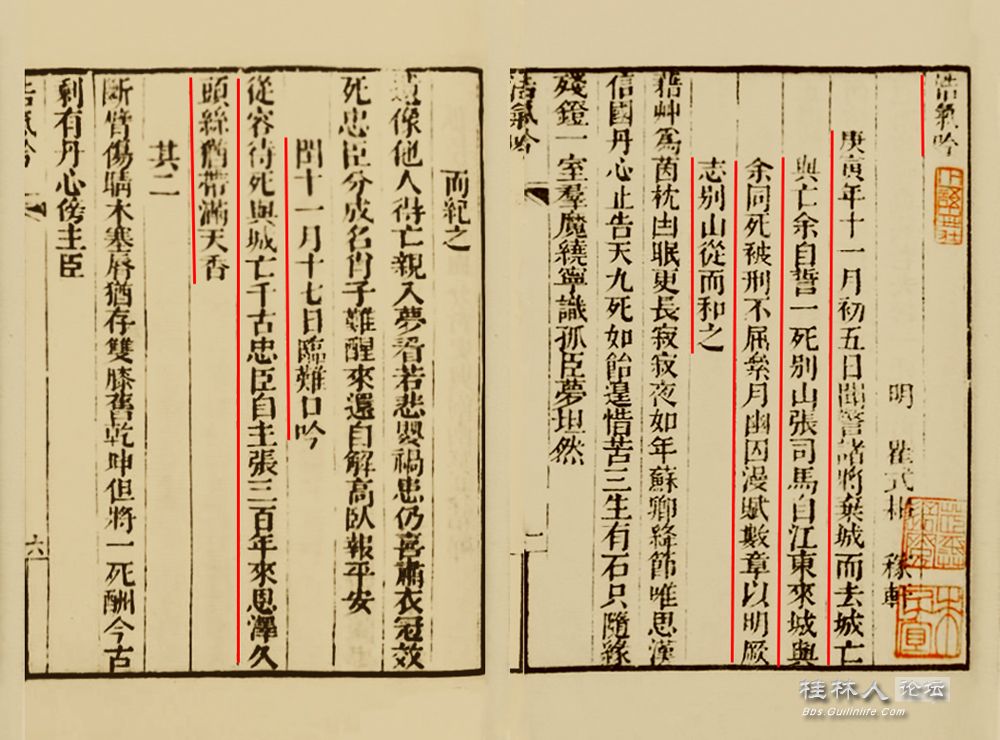 浩氣吟
明 瞿式耜 稼軒
庚寅年十一月初五日聞警諸將棄城而去城亡
與亡余自誓一死別山張司馬自江東來城與
余同死被刑不屈纍月幽囚漫賦數章以明厥
志別山從而和之
藉艸爲茵枕凷眠更長寂寂夜如年蘇卿絳節唯思漢
信國丹心止告天九死如飴遑惜苦三生有石只隨緣
殘鐙一室羣魔繞寧識孤臣夢坦然
浩氣吟
二
而紀之
像他人得亡親入夢看若悲嬰禍患仍喜肅衣冠效
死忠臣分成名肖子難醒來還自解高臥報平安
閏十一月十七日臨難口吟
從容待死與城亡千古忠臣自主張三百年來恩澤久
頭絲猶帶滿天香
其二
斷臂傷睛木塞脣猶存雙膝舊乾坤但將一死酬今古
剩有丹心傍主臣
浩氣吟
六
桂林人论坛
Bbs.Guilinlife.Com